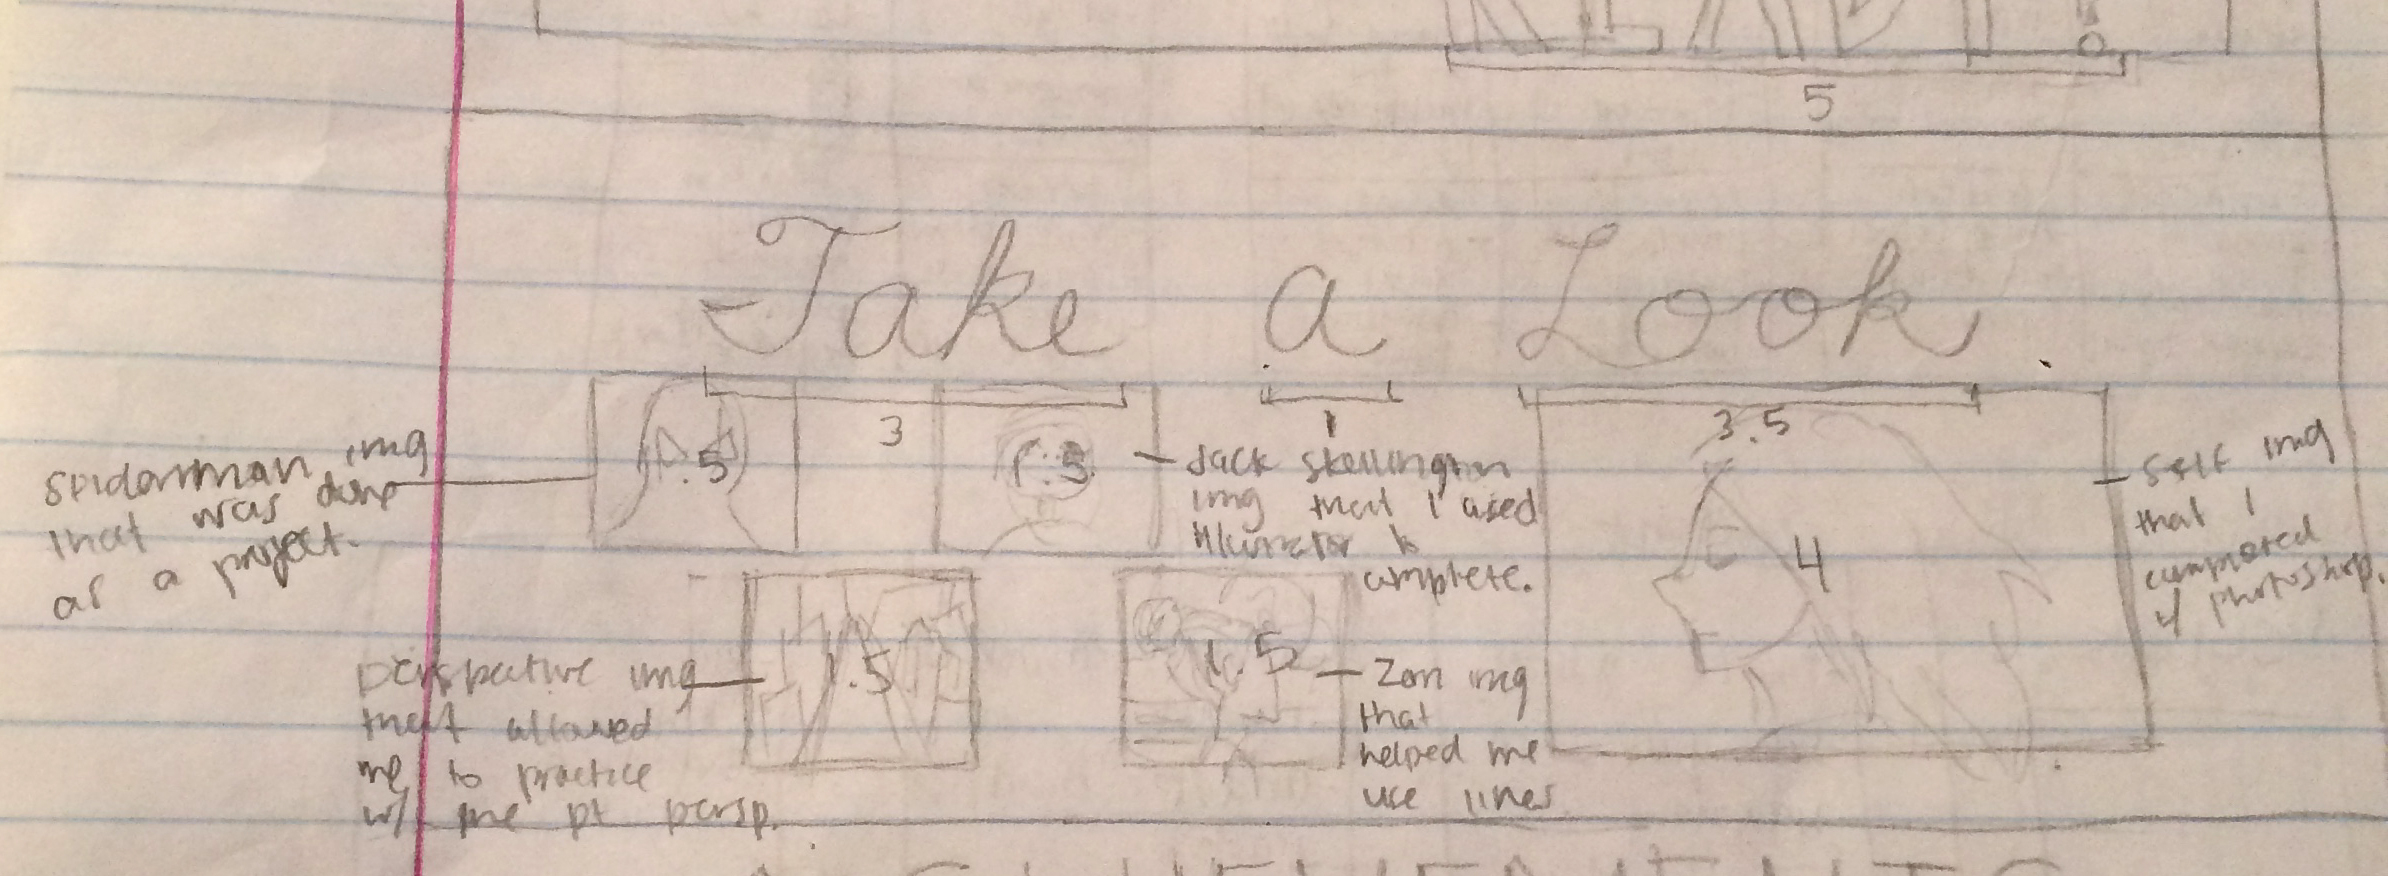 READY!
5
Take a Look
3
1
3.5
.5
Spiderman img
that was done
as a project.
1.5
Jack Skellington
img that I used
Illustrator to
complete.
4
Self img
that I
completed
w/ photoshop.
Perspective img
that allowed
me to practice
w/ one pt persp.
1.5
1.5
Zen img
that
helped me
use lines